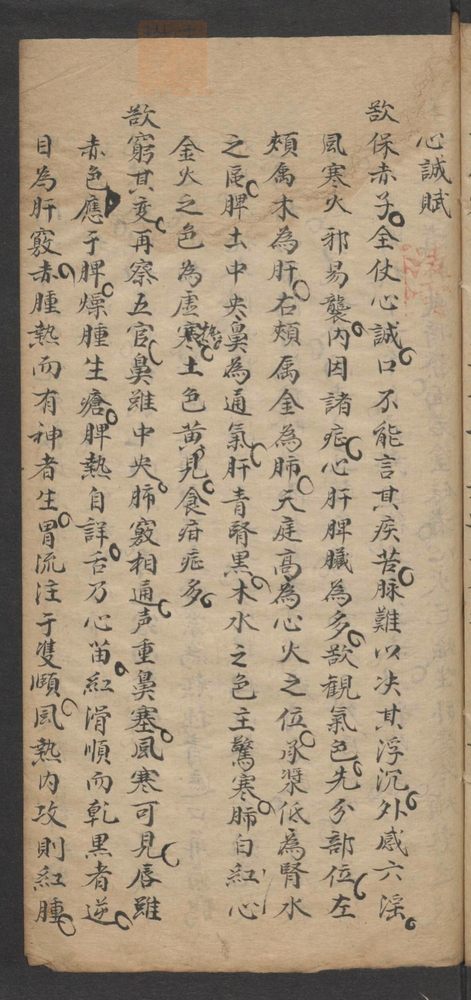 心誠賦
欲保赤子全仗心誠口不能言其疾苦脉難以决其浮沉外感六淫
風寒火邪易襲内因諸疟心肝脾臟為多欲観氣色先分部位左
頰属木為肝右頰属金為肺天庭高為心火之位承漿低為腎水
之區脾土中央鼻為通氣肝青腎黑木水之色主驚寒肺白紅心
金火之色為虚寒熱土色黄見食疳疟多
欲窮其変再察五官鼻雖中央肺竅相通声重鼻塞風寒可見唇雖
赤色應于脾燥腫生瘡脾熱自詳舌乃心苗紅滑順而乾黑者逆
目為肝竅赤腫熱而有神者生胃流注于雙頤風熱内攻則紅腫